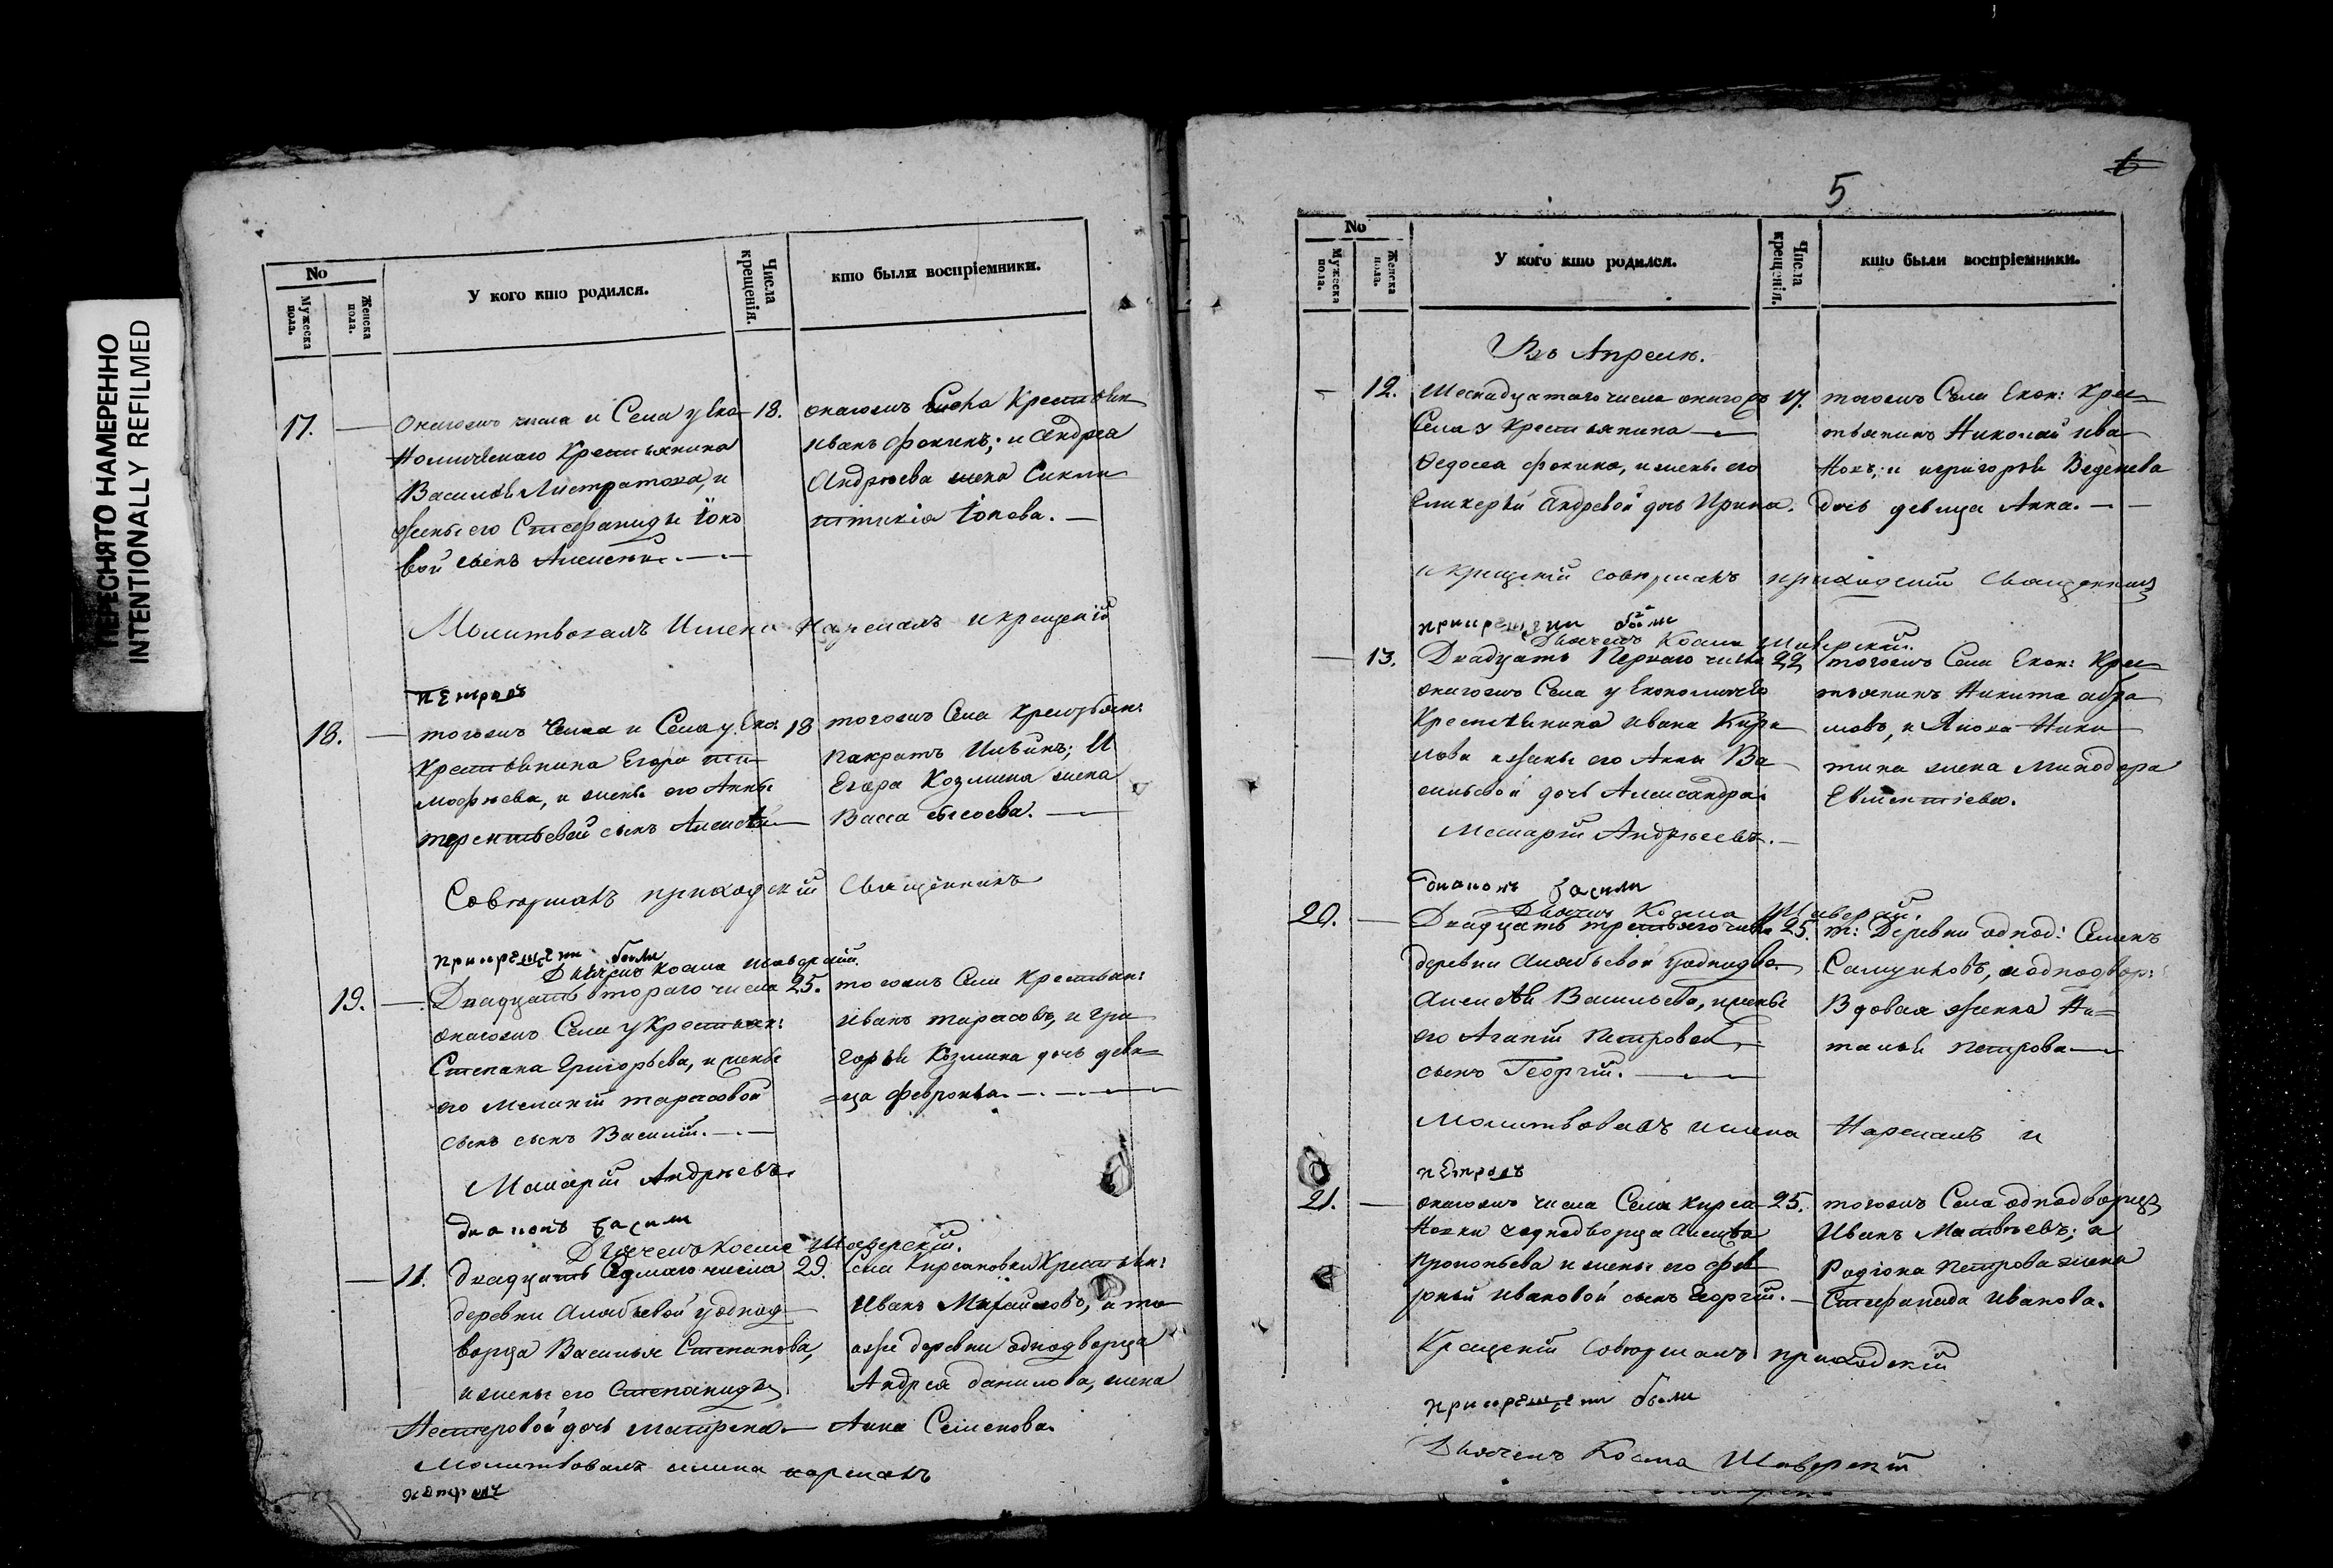 ПЕРЕСНЯТО НАМЕРЕННО
INTENTIONALLY REFILMED
No
Мужеска пола.
Женска пола.
У кого кто родился.
Числа крещенія.
кто были воспріемники.
17. — Онагожъ числа и Села у Еко
номическаго Крестьянина
Василья Листратова, и
жены его Стефаниды
вой сынъ Алексѣй. —
18. онагожъ Села Крестьян
иванъ фокинъ; и Андрея
Андреева жена
Молитвовалъ Имена Нарекалъ и крещеніе
петромъ
18. — тогожъ Числа и Села у Еко:
крестьянина Егора ти
мофѣева, и жены его Анны
терентьевой сынъ Алексѣй
18 тогожъ Села крестьян:
панкратъ Ильинъ; И
Егора Козмина жена
Васса
Совершалъ приходскій Священникъ
при крещеніи были
Дьячекъ Косма
19. — Двадцать втораго числа
онагожъ Села у Крестьян:
Степана Григорьева, и жены
его Меланіи тарасовой
сынъ сынъ Василій. —
25. тогожъ Села Крестьян:
Иванъ тарасовъ, и гри
горья Козмина дочь деви=
=ца февронья. —
Макарій Андреевъ.
диаконъ васили
Дьячекъ Косма
— 11. двадцать Седмаго числа
деревни Алабьевой у однод
ворца Василья Степанова,
и жены его Степаниды
Нестеровой дочь матрена. —
29. Села Кирсановки Крестьян:
Иванъ Михайловъ, а то
яже деревни однодворца
Андрея данилова, жена
Анна Семенова.
Молитвовалъ имена нарекалъ
петромъ
5
6
No
Мужеска пола.
Женска пола.
У кого кто родился.
Числа крещенія.
кто были воспріемники.
Въ Апреле.
— 12. Шеснадцатаго числа онагожъ
Села у крестьянина —
Федосея фокина, и жены его
Гликерьи Андревой дочь Ирина.
17. тогожъ Села Екон: Крес
тьянинъ Николай ива
новъ; и григорья Веденева
дочь девица Анна. — —
и крещеній совершалъ приходскій Священникъ
при крещеніи были
Дьячекъ Косма
— 13. Двадцать Перваго числа
онагожъ Села у Економическ
Крестьянина ивана Кири
лова и жены его Анны Ва
сильевой дочь Александра.
22 тогожъ Села Екон: Крес
тьянинъ Никита абра
мовъ, и Якова Ники
тина жена Минодора
Макарій Андреевъ. —
диаконъ васили
Дьячекъ Косма
20. — Двадцать третьяго числа
деревни Алабьевой у однодво
Алексѣя Васильева, и жены
его Агапіи Петровой,
сынъ Георгій. —
25. т: Деревни однод: Семенъ
и однодвор:
Вдовая женка На=
талья петрова —
Молитвовалъ имена Нарекалъ и
петромъ
21. — онагожъ числа Села Кирса
новки у однодворца Алексѣя
Прокопьева и жены его фев
роньи Ивановой сынъ Георгій. —
25. тогожъ Села однодворецъ
Иванъ Матвѣевъ; а
Родіона Петрова жена
Стефанида Иванова.
Крещеній Совершалъ приходскій
при крещеніи были
Дьячекъ Косма